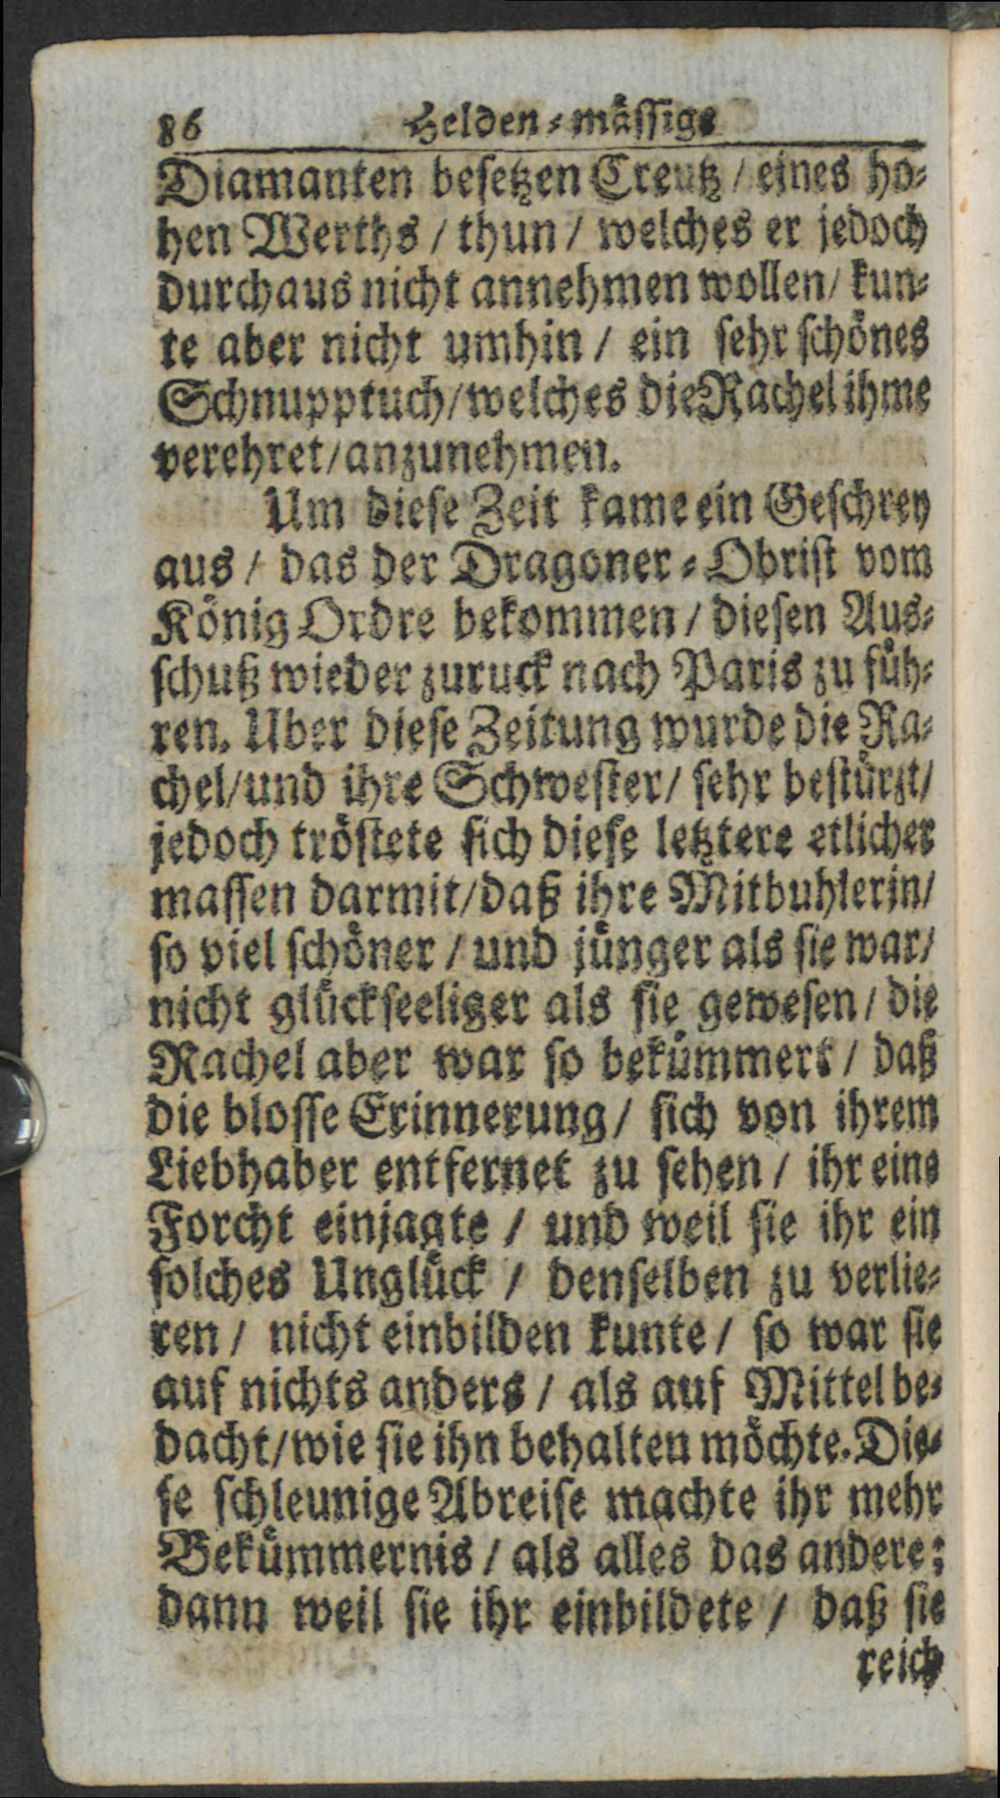 86 Helden-mässige
Diamanten besetzen Creutz / eines ho-
hen Werths / thun / welches er jedoch
durchaus nicht annehmen wollen / kun-
te aber nicht umhin / ein sehr schönes
Schnupptuch / welches die Rachel ihme
verehret / anzunehmen.
Um diese Zeit kame ein Geschrey
aus / das der Dragoner-Obrist vom
König Ordre bekommen / diesen Aus-
schuß wieder zuruck nach Paris zu füh-
ren. Uber diese Zeitung wurde die Ra-
chel / und ihre Schwester / sehr bestürzt /
jedoch tröstete sich diese letztere etlicher
massen darmit / daß ihre Mitbuhlerin /
so viel schöner / und jünger als sie war /
nicht glückseeliger als sie gewesen / die
Rachel aber war so bekümmert / daß
die blosse Erinnerung / sich von ihrem
Liebhaber entfernet zu sehen / ihr eine
Forcht einjagte / und weil sie ihr ein
solches Unglück / denselben zu verlie-
ren / nicht einbilden kunte / so war sie
auf nichts anders / als auf Mittel be-
dacht / wie sie ihn behalten möchte. Die-
se schleunige Abreise machte ihr mehr
Bekümmernis / als alles das andere;
dann weil sie ihr einbildete / daß sie
reich